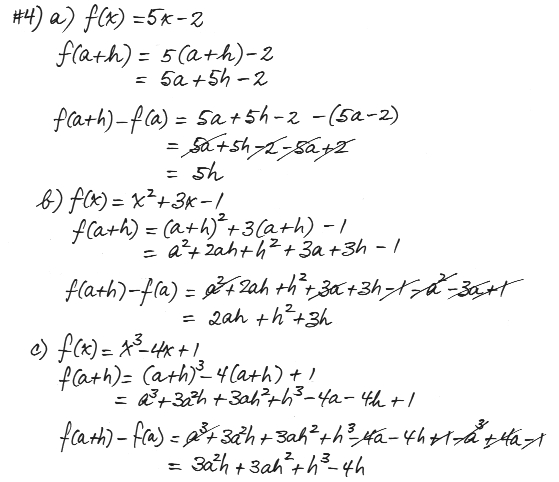 #4) a) f(x) = 5x - 2
f(a+h) = 5(a+h) - 2
= 5a + 5h - 2
f(a+h) - f(a) = 5a + 5h - 2 - (5a - 2)
= 5a + 5h - 2 - 5a + 2
= 5h
b) f(x) = x² + 3x - 1
f(a+h) = (a+h)² + 3(a+h) - 1
= a² + 2ah + h² + 3a + 3h - 1
f(a+h) - f(a) = a² + 2ah + h² + 3a + 3h - 1 - a² - 3a + 1
= 2ah + h² + 3h
c) f(x) = x³ - 4x + 1
f(a+h) = (a+h)³ - 4(a+h) + 1
= a³ + 3a²h + 3ah² + h³ - 4a - 4h + 1
f(a+h) - f(a) = a³ + 3a²h + 3ah² + h³ - 4a - 4h + 1 - a³ + 4a - 1
= 3a²h + 3ah² + h³ - 4h